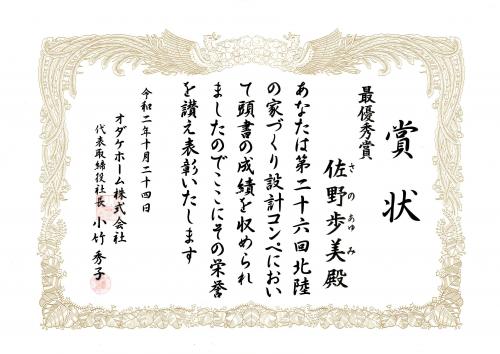 賞状
最優秀賞
佐野歩美殿
さのあゆみ
あなたは第二十六回北陸
の家づくり設計コンペにおい
て頭書の成績を収められ
ましたのでここにその栄誉
を讃え表彰いたします
令和二年十月二十四日
オダケホーム株式会社
代表取締役社長 小竹秀子